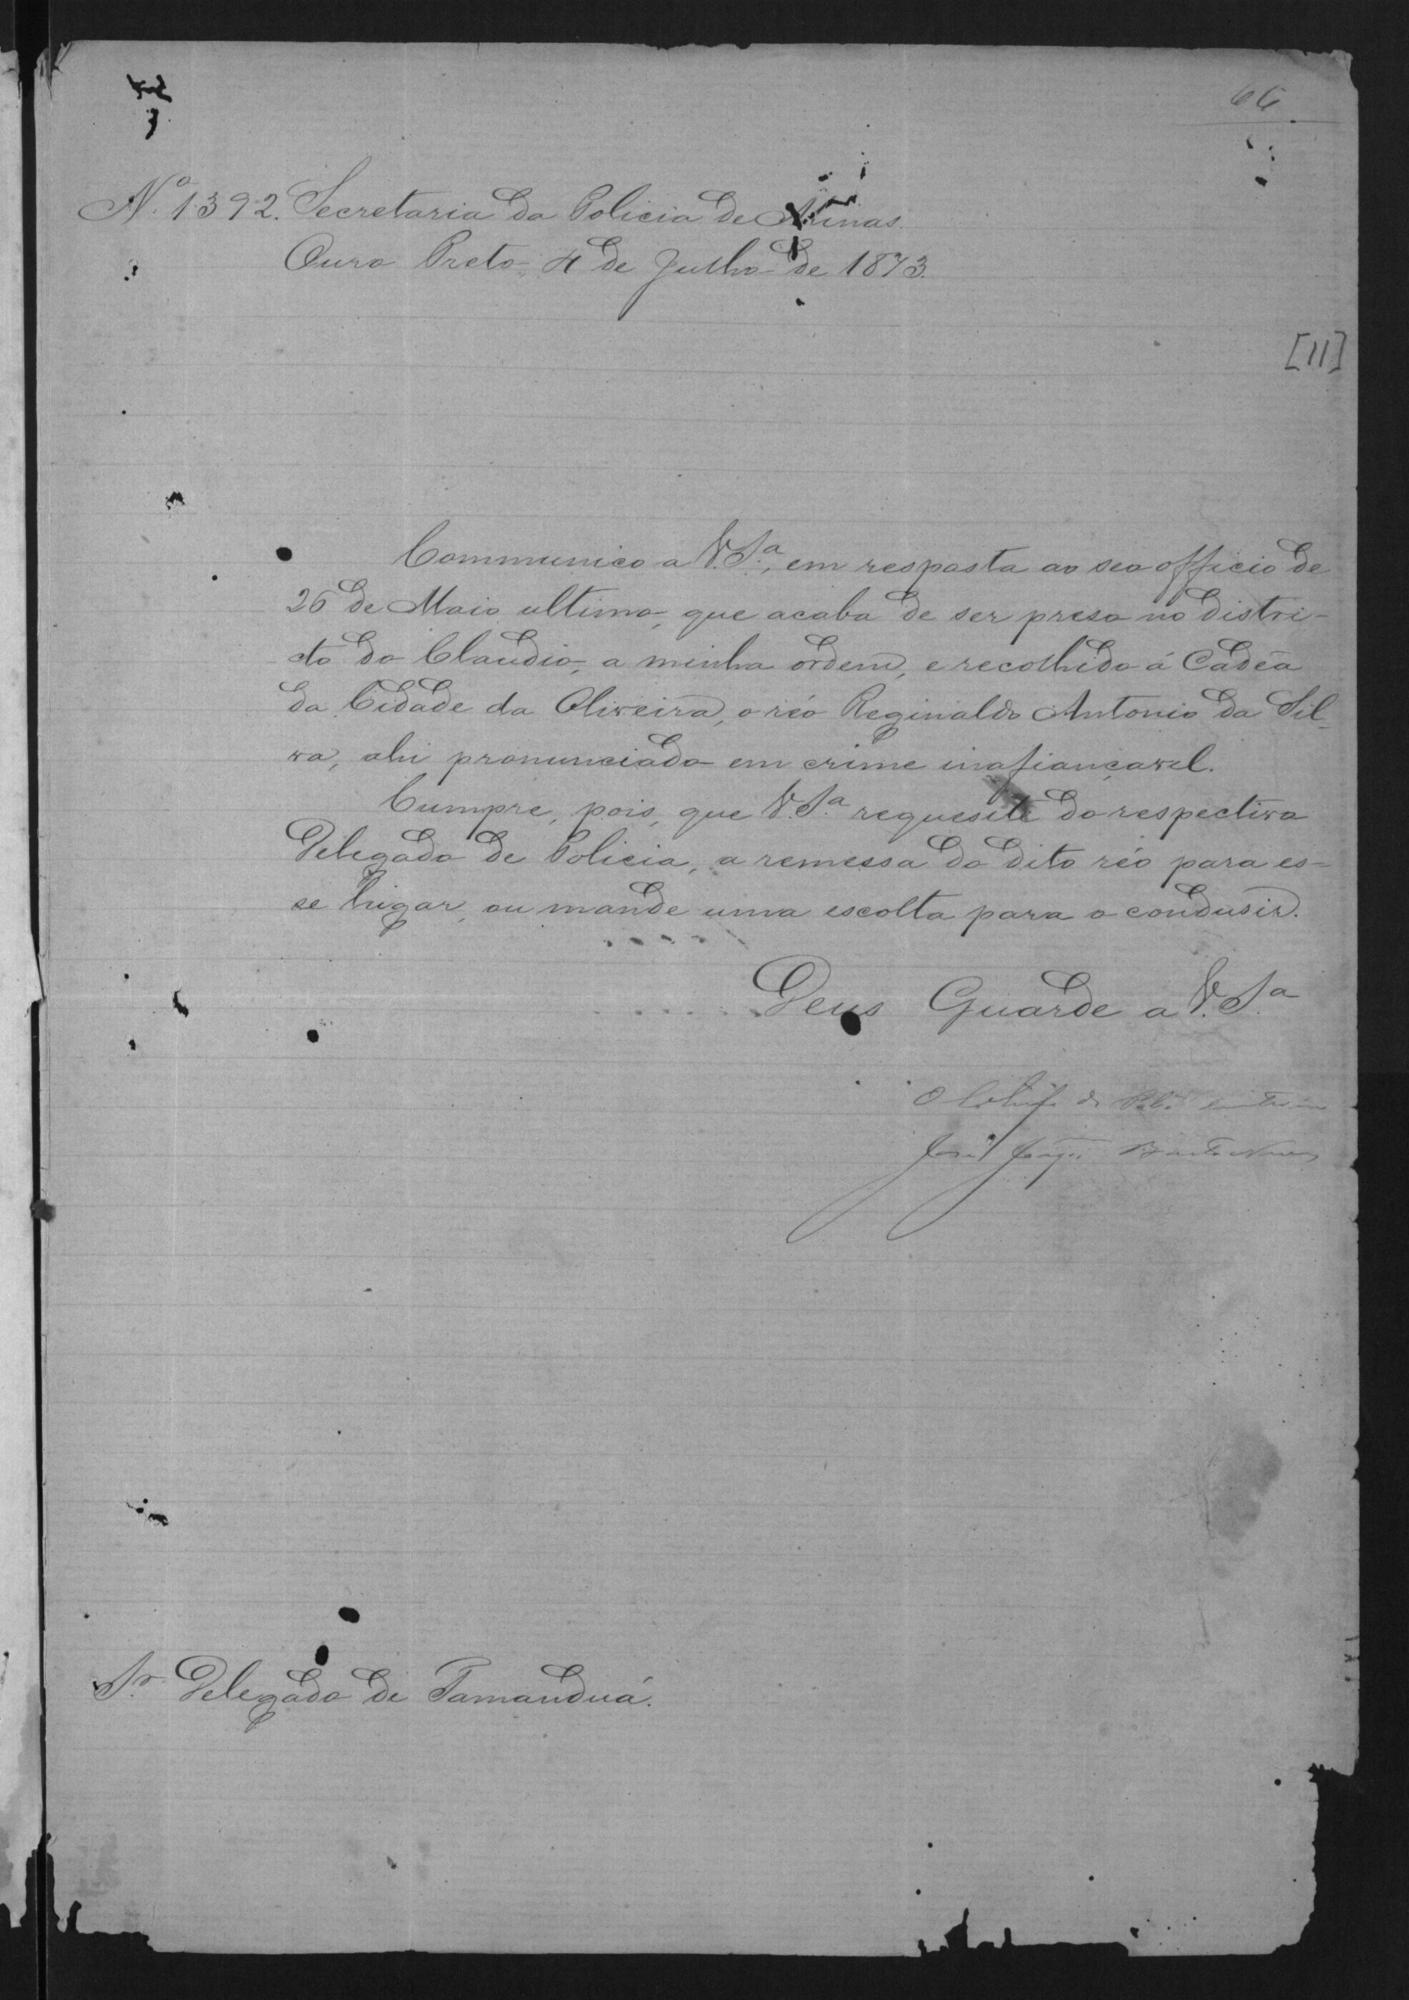 66
Nº 1392. Secretaria da Policia de Minas.
Ouro Preto 4 de Julho de 1873.
[11]
Communico a V. S.ª, em resposta ao seo officio de
26 de Maio ultimo, que acaba de ser preso no distri-
cto do Claudio, a minha ordem, e recolhido á Cadêa
da Cidade da Oliveira, o réo Reginaldo Antonio da Sil-
va, ahi pronunciado em crime inafiançavel.
Cumpre, pois, que V. S.ª requesite do respectivo
Delegado de Policia, a remessa do dito réo para es-
se lugar, ou mande uma escolta para o condusir.
Deus Guarde a V. S.ª
O Chefe de Pol.ª interino
José
Sr. Delegado de Tamanduá.